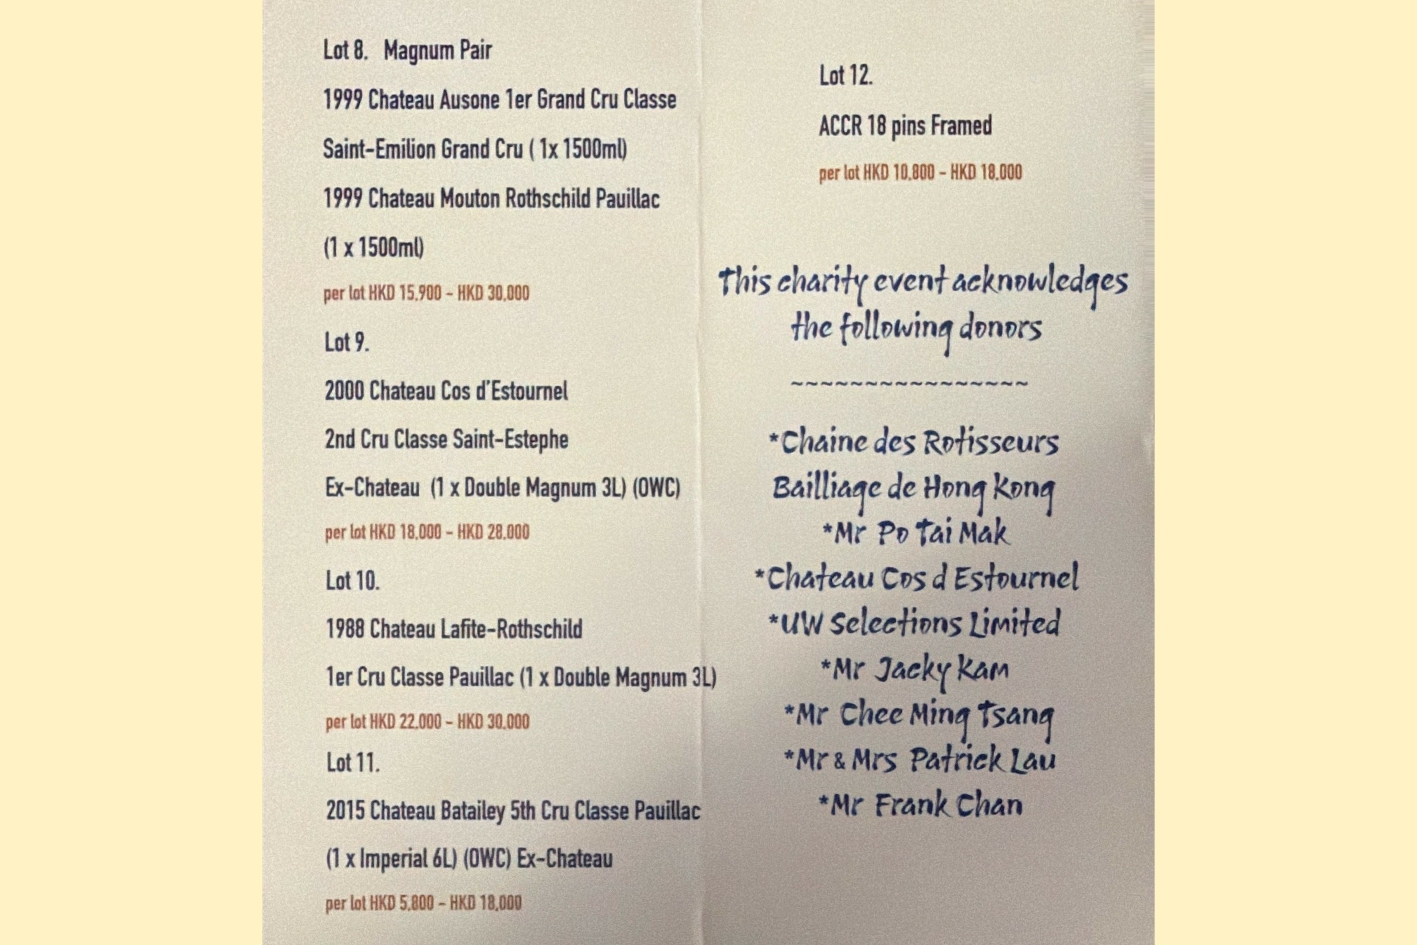 Lot 8. Magnum Pair
1999 Chateau Ausone 1er Grand Cru Classe
Saint-Emilion Grand Cru ( 1x 1500ml)
1999 Chateau Mouton Rothschild Pauillac
(1 x 1500ml)
per lot HKD 15,900 - HKD 30,000
Lot 9.
2000 Chateau Cos d'Estournel
2nd Cru Classe Saint-Estephe
Ex-Chateau (1 x Double Magnum 3L) (OWC)
per lot HKD 18,000 - HKD 28,000
Lot 10.
1988 Chateau Lafite-Rothschild
1er Cru Classe Pauillac (1 x Double Magnum 3L)
per lot HKD 22,000 - HKD 30,000
Lot 11.
2015 Chateau Batailey 5th Cru Classe Pauillac
(1 x Imperial 6L) (OWC) Ex-Chateau
per lot HKD 5,800 - HKD 18,000
Lot 12.
ACCR 18 pins Framed
per lot HKD 10,800 - HKD 18,000
This charity event acknowledges
the following donors
~~~~~~~~~~~~~~~~
*Chaine des Rotisseurs
Bailliage de Hong Kong
*Mr Po Tai Mak
*Chateau Cos d Estournel
*UW Selections Limited
*Mr Jacky Kam
*Mr Chee Ming Tsang
*Mr & Mrs Patrick Lau
*Mr Frank Chan